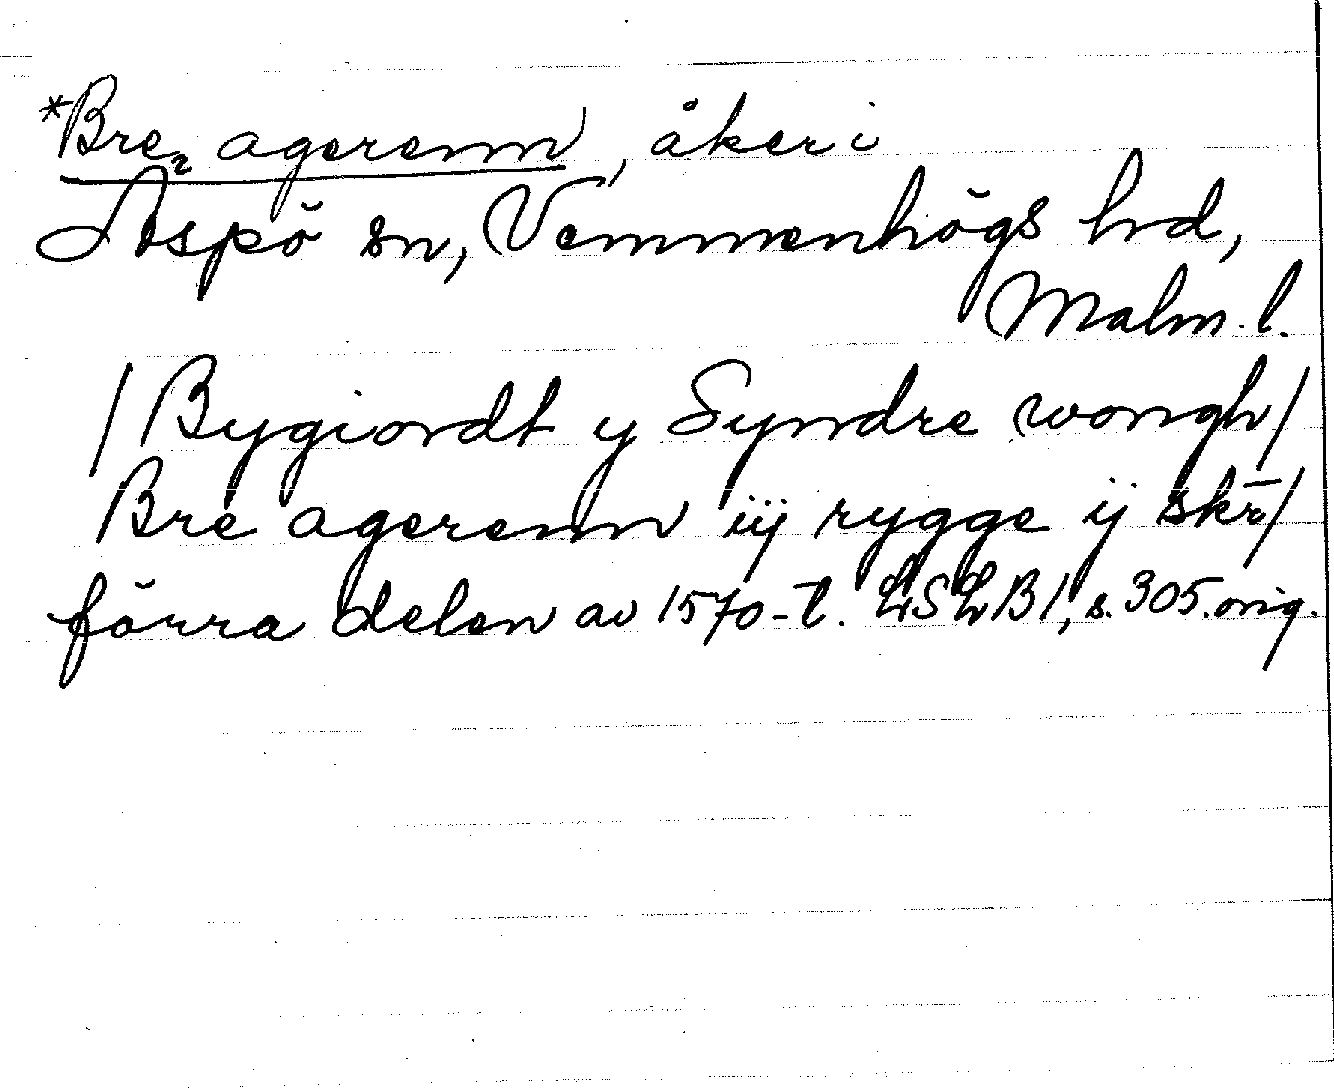 *Bre agerenn, åker i
Äspö sn, Vemmenhögs hrd,
Malm. l.
/Bygiordt y Syndre wongh/
Bre agerenn iij rygge ij skr̄/
förra delen av 1570-t. LSLB1, s. 305. orig.